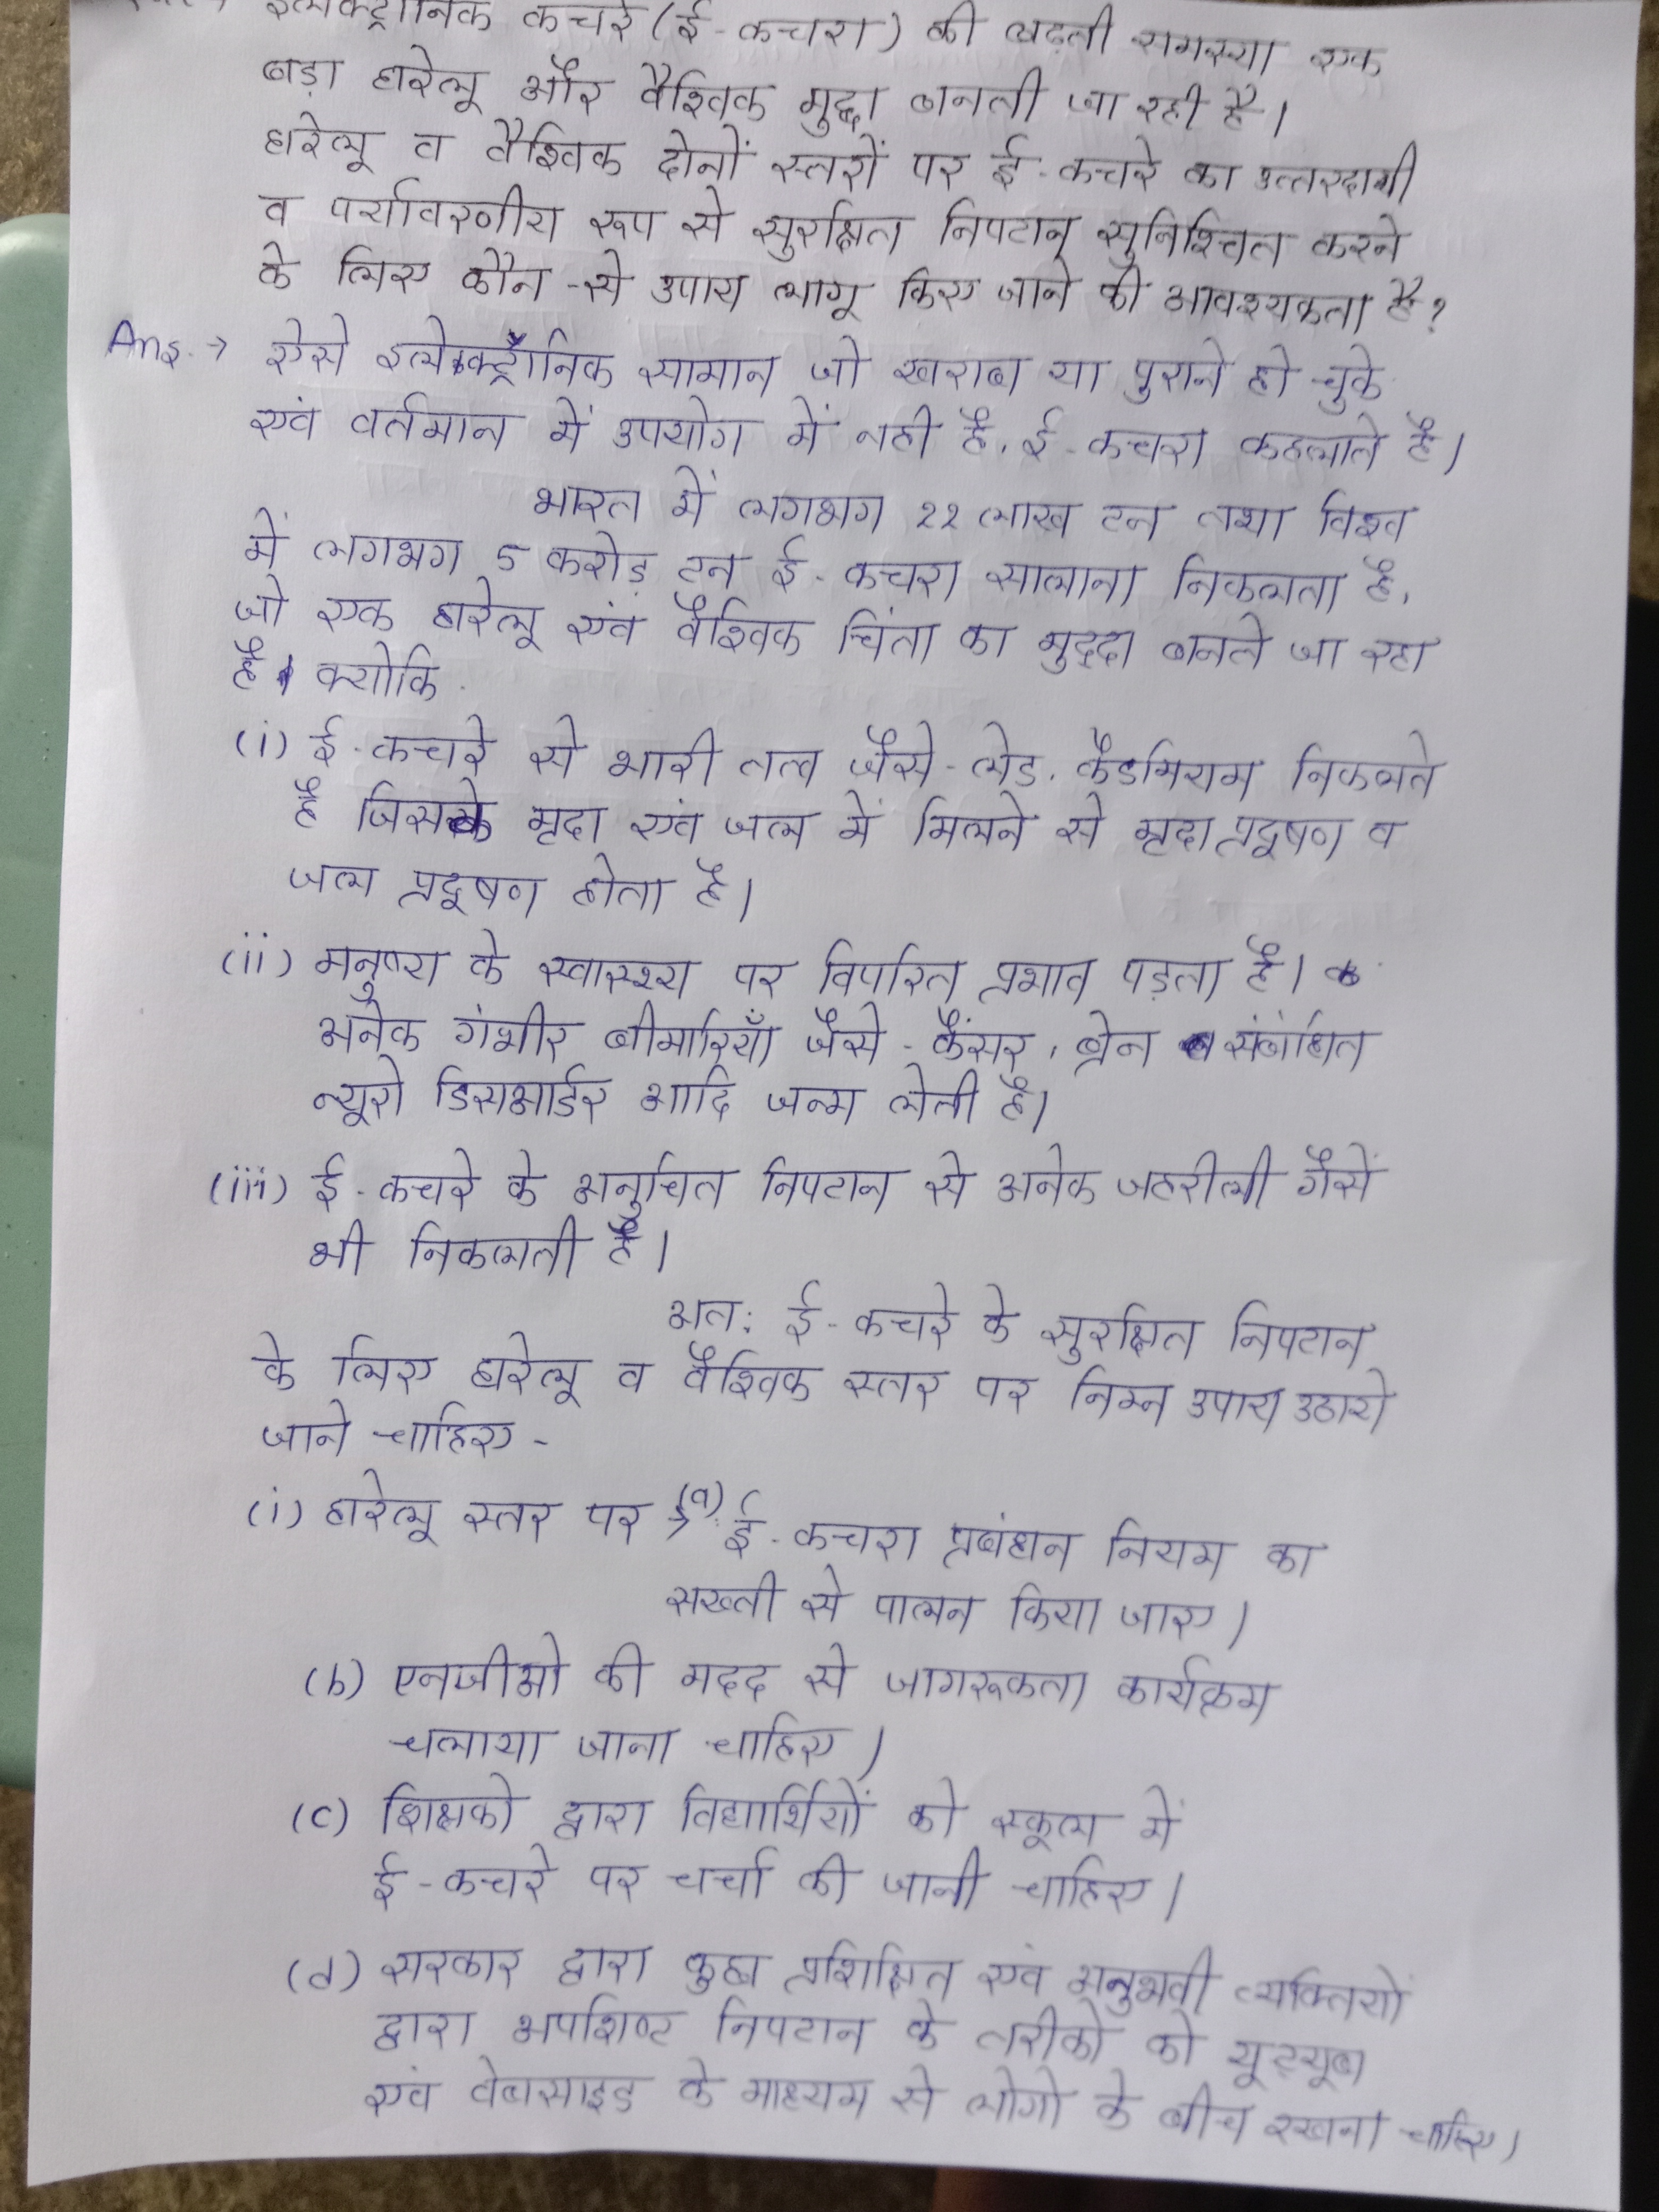 इलेक्ट्रॉनिक कचरे (ई-कचरा) की बढ़ती समस्या एक
बड़ा घरेलू और वैश्विक मुद्दा बनती जा रही है।
घरेलू व वैश्विक दोनों स्तरों पर ई-कचरे का उत्तरदायी
व पर्यावरणीय रूप से सुरक्षित निपटान सुनिश्चित करने
के लिए कौन-से उपाय लागू किए जाने की आवश्यकता है?
Ans. → ऐसे इलेक्ट्रॉनिक सामान जो खराब या पुराने हो चुके
एवं वर्तमान में उपयोग में नही है, ई-कचरा कहलाते है।
भारत में लगभग 22 लाख टन तथा विश्व
में लगभग 5 करोड़ टन ई-कचरा सालाना निकलता है,
जो एक घरेलू एवं वैश्विक चिंता का मुद्दा बनते जा रहा
है क्योकि
(i) ई-कचरे से भारी तत्व जैसे-लेड, कैडमियम निकलते
है जिसके मृदा एवं जल में मिलने से मृदा प्रदूषण व
जल प्रदूषण होता है।
(ii) मनुष्य के स्वास्थ्य पर विपरित प्रभाव पड़ता है।
अनेक गंभीर बीमारियाँ जैसे - कैंसर, ब्रेन संबंधित
न्यूरो डिसआर्डर आदि जन्म लेती है।
(iii) ई-कचरे के अनुचित निपटान से अनेक जहरीली गैसें
भी निकलती है।
अत: ई-कचरे के सुरक्षित निपटान
के लिए घरेलू व वैश्विक स्तर पर निम्न उपाय उठाये
जाने चाहिए -
(i) घरेलू स्तर पर → (a) ई-कचरा प्रबंधन नियम का
सख्ती से पालन किया जाए।
(b) एनजीओ की मदद से जागरूकता कार्यक्रम
चलाया जाना चाहिए।
(c) शिक्षको द्वारा विद्यार्थियों को स्कूल में
ई-कचरे पर चर्चा की जानी चाहिए।
(d) सरकार द्वारा कुछ प्रशिक्षित एवं अनुभवी व्यक्तियों
द्वारा अपशिष्ट निपटान के तरीको को यूट्यूब
एवं वेबसाइड के माध्यम से लोगो के बीच रखना चाहिए।